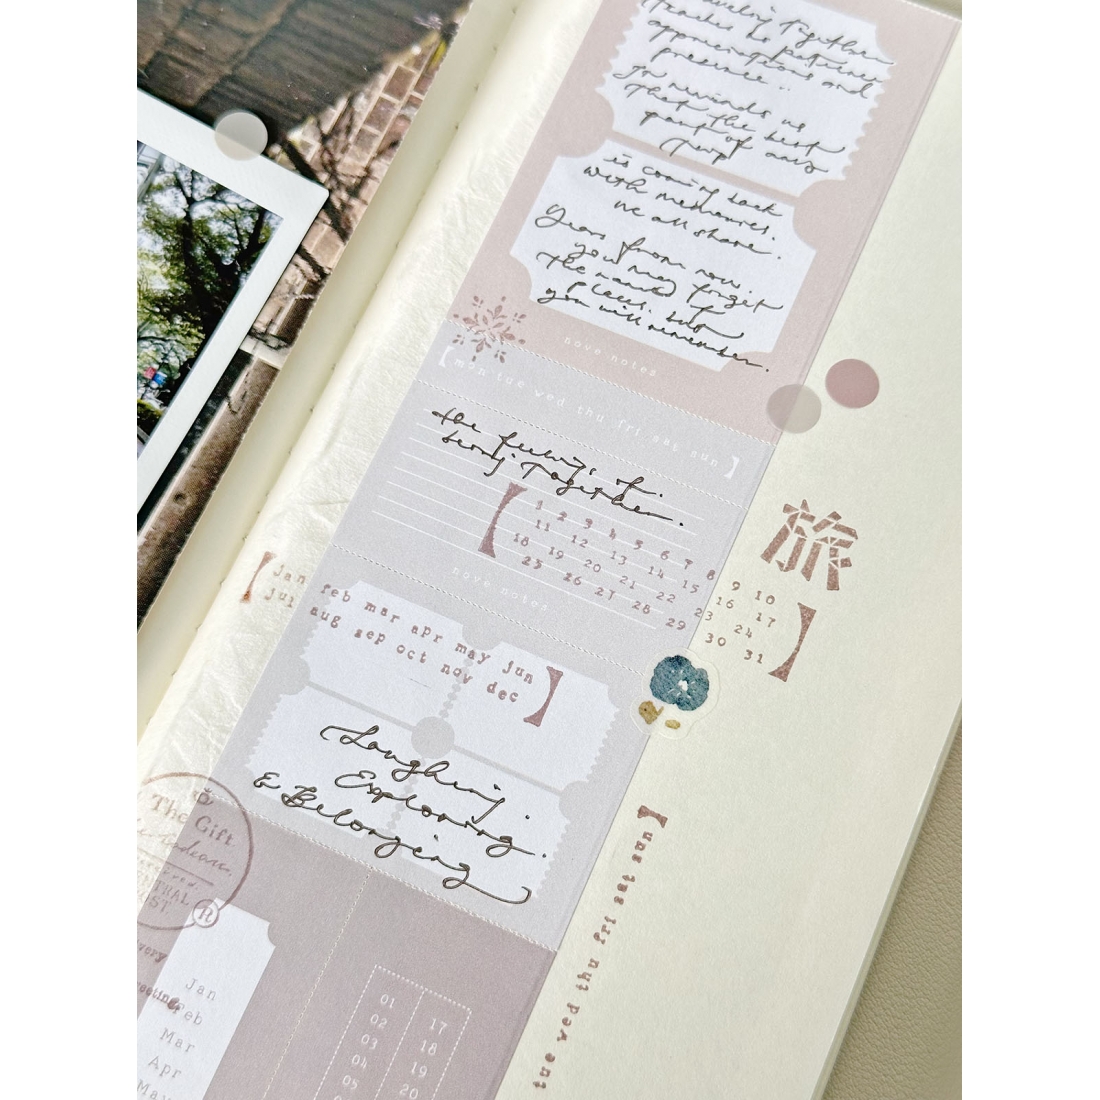 Together
teaches us patience
appreciations and
presence..
It reminds us
that the best
part of any
trip
is coming back
with memories.
we all share.
Years from now.
you may forget
the names of
places. but
you will remember.
nove notes
【mon tue wed thu fri sat sun】
the feelings of.
being together.
【 1 2 3 4 5 6 7 8 9 10
11 12 13 14 15 16 17
18 19 20 21 22 23 24
25 26 27 28 29 30 31 】
旅
nove notes
【 Jan feb mar apr may jun
jul aug sep oct nov dec 】
(Laughing.
Exploring.
& Belonging)
The Gift
R
every
Jan
Feb
Mar
Apr
May
01 17
02 18
03 19
04 20
05
tue wed thu fri sat sun】